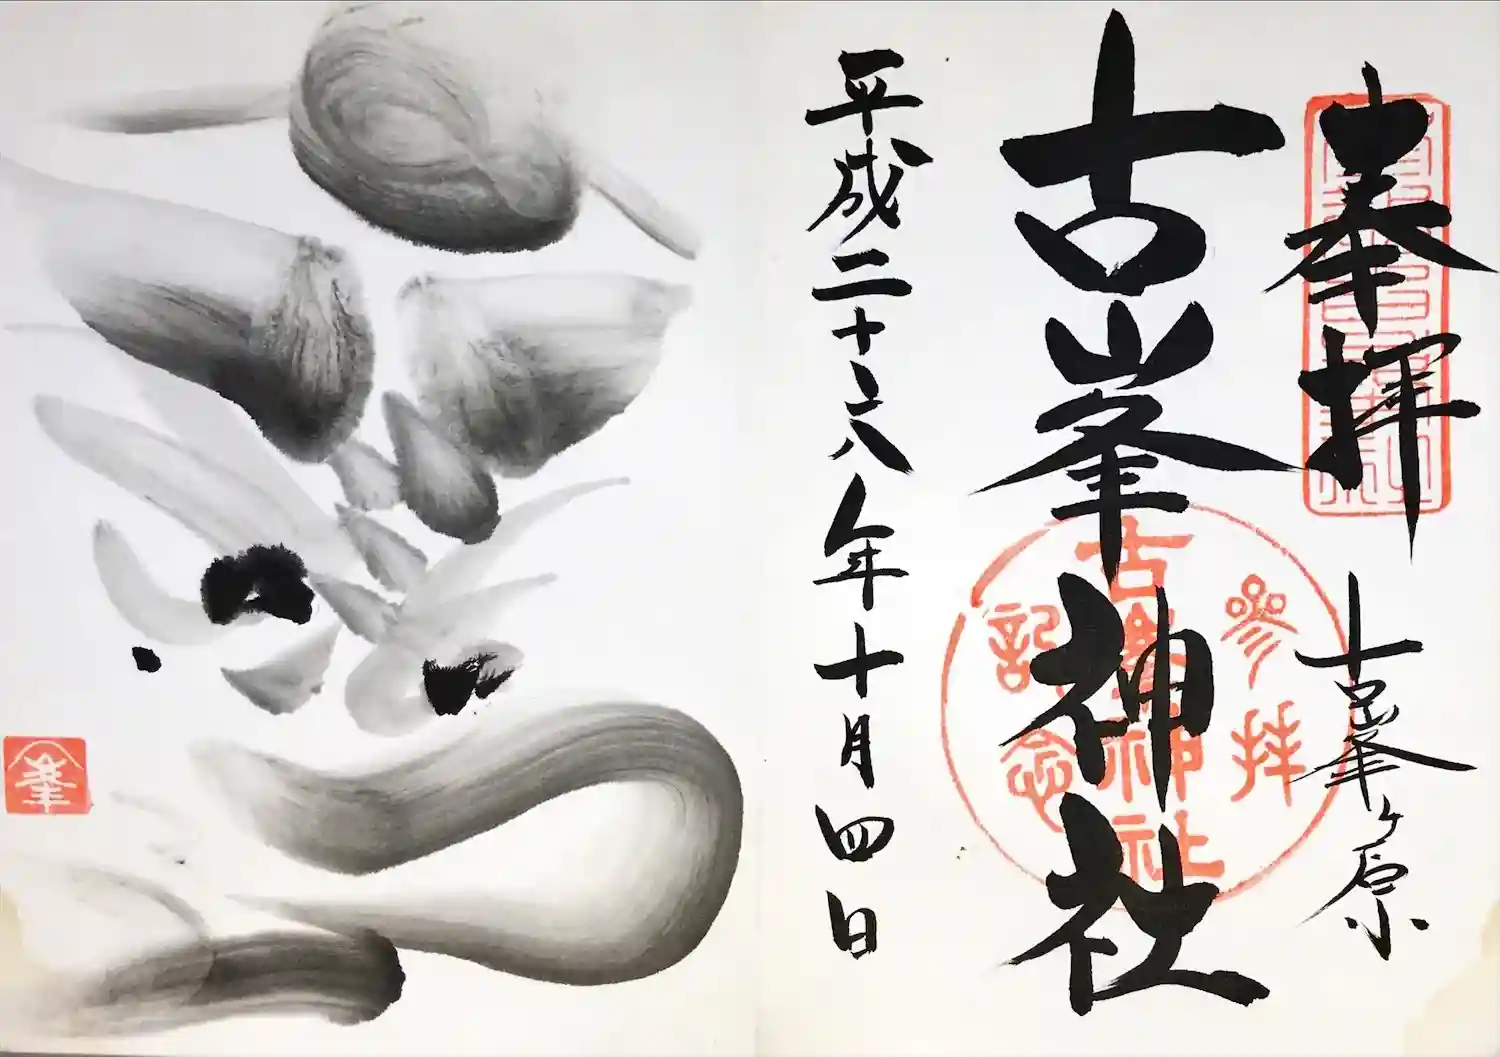 奉拝
古峯ヶ原
古峯神社
参拝
古峯神社
記念
平成二十八年十月四日
峯